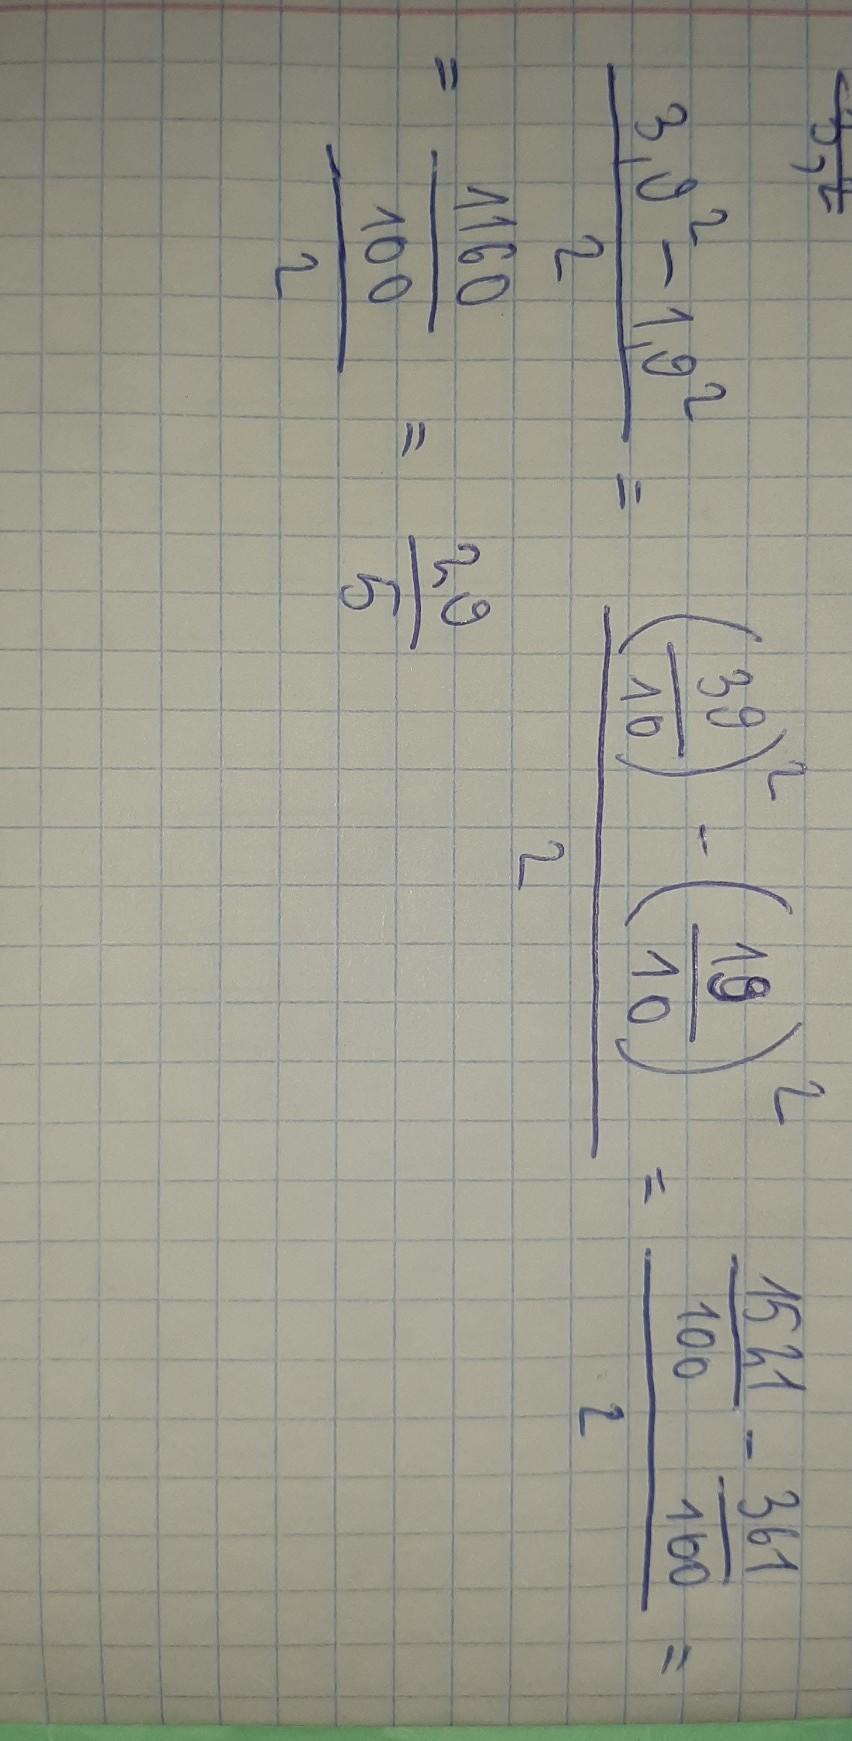 3,2
(3,9² - 1,9²)/2 = ((39/10)² - (19/10)²)/2 = (1521/100 - 361/100)/2 =
= (1160/100)/2 = 29/5